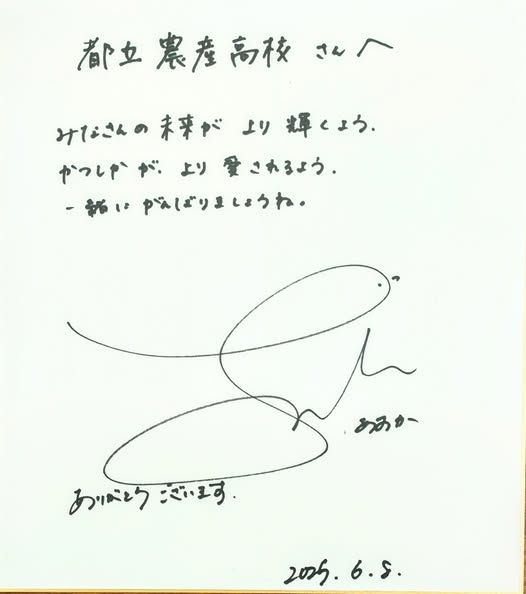 都立農産高校 さんへ
みなさんの 未来が より 輝くよう.
かつしかが, より 愛されるよう.
一緒に がんばりましょうね。
ありがとう ございます.
2025. 6. 8.